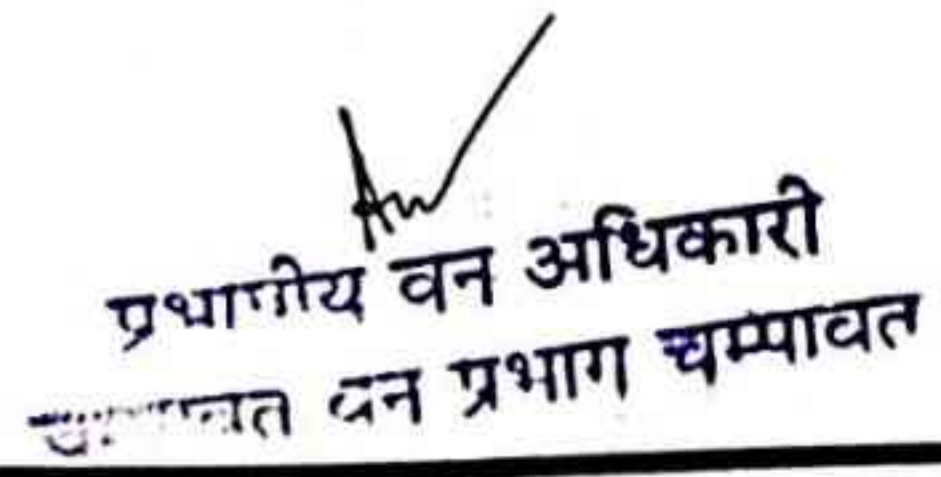 प्रभागीय वन अधिकारी
वन प्रभाग चम्पावत